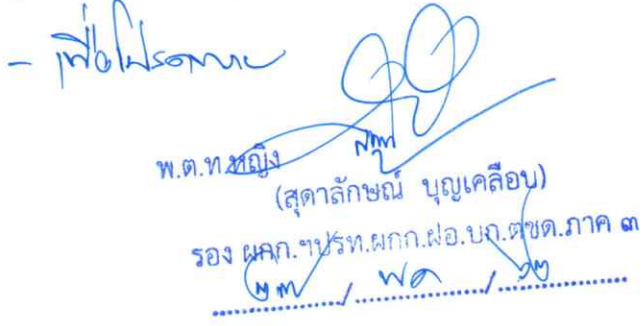 - เพื่อโปรดทราบ
พ.ต.ท.หญิง
(สุดาลักษณ์ บุญเคลือบ)
รอง ผกก.ฯปรท.ผกก.ฝอ.บก.ตชด.ภาค ๓
๒๗ / พค / ๖๒